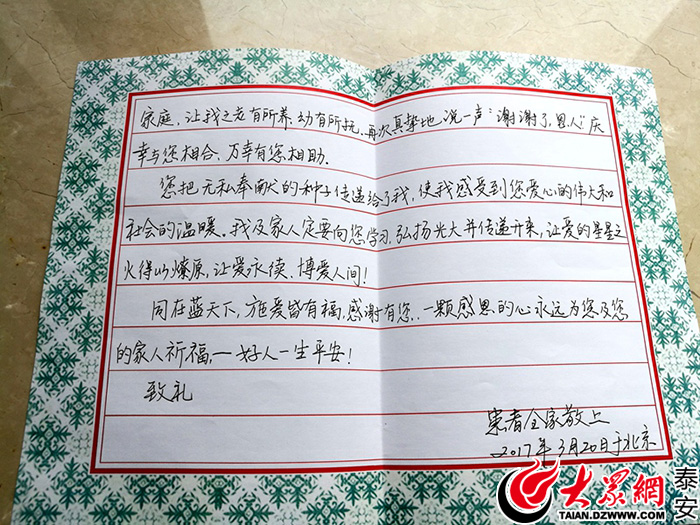 家庭，让我之老有所养、幼有所托，再次真挚地说一声："谢谢了，恩人"！庆
幸与您相合，万幸有您相助.
您把无私奉献的种子传递给了我，使我感受到您爱心的伟大和
社会的温暖。我及家人定要向您学习，弘扬光大并传递开来，让爱的星星之
火得以燎原，让爱永续、博爱人间！
同在蓝天下，施爱皆有福，感谢有您，一颗感恩的心永远为您及您
的家人祈福，一好人一生平安！
致礼
患者全家敬上
2017年3月20日于北京
大众網
泰安
TAIAN.DZWWW.COM